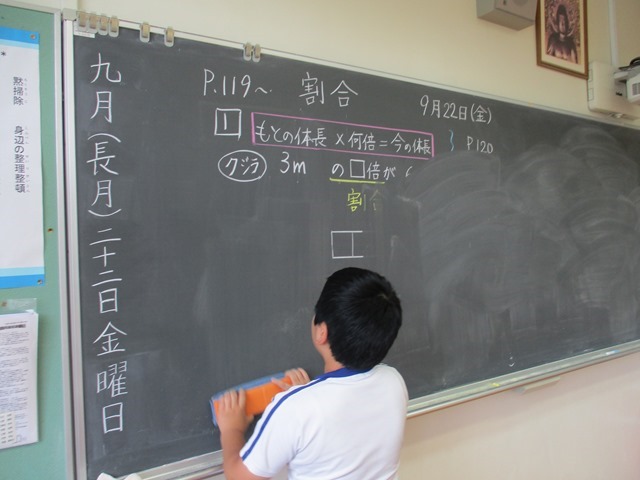 黙掃除
身辺の整理整頓
九月(長月)二十二日金曜日
P.119〜 割合
9月22日(金)
1 もとの体長×何倍=今の体長
P120
クジラ 3m の□倍が(
割合